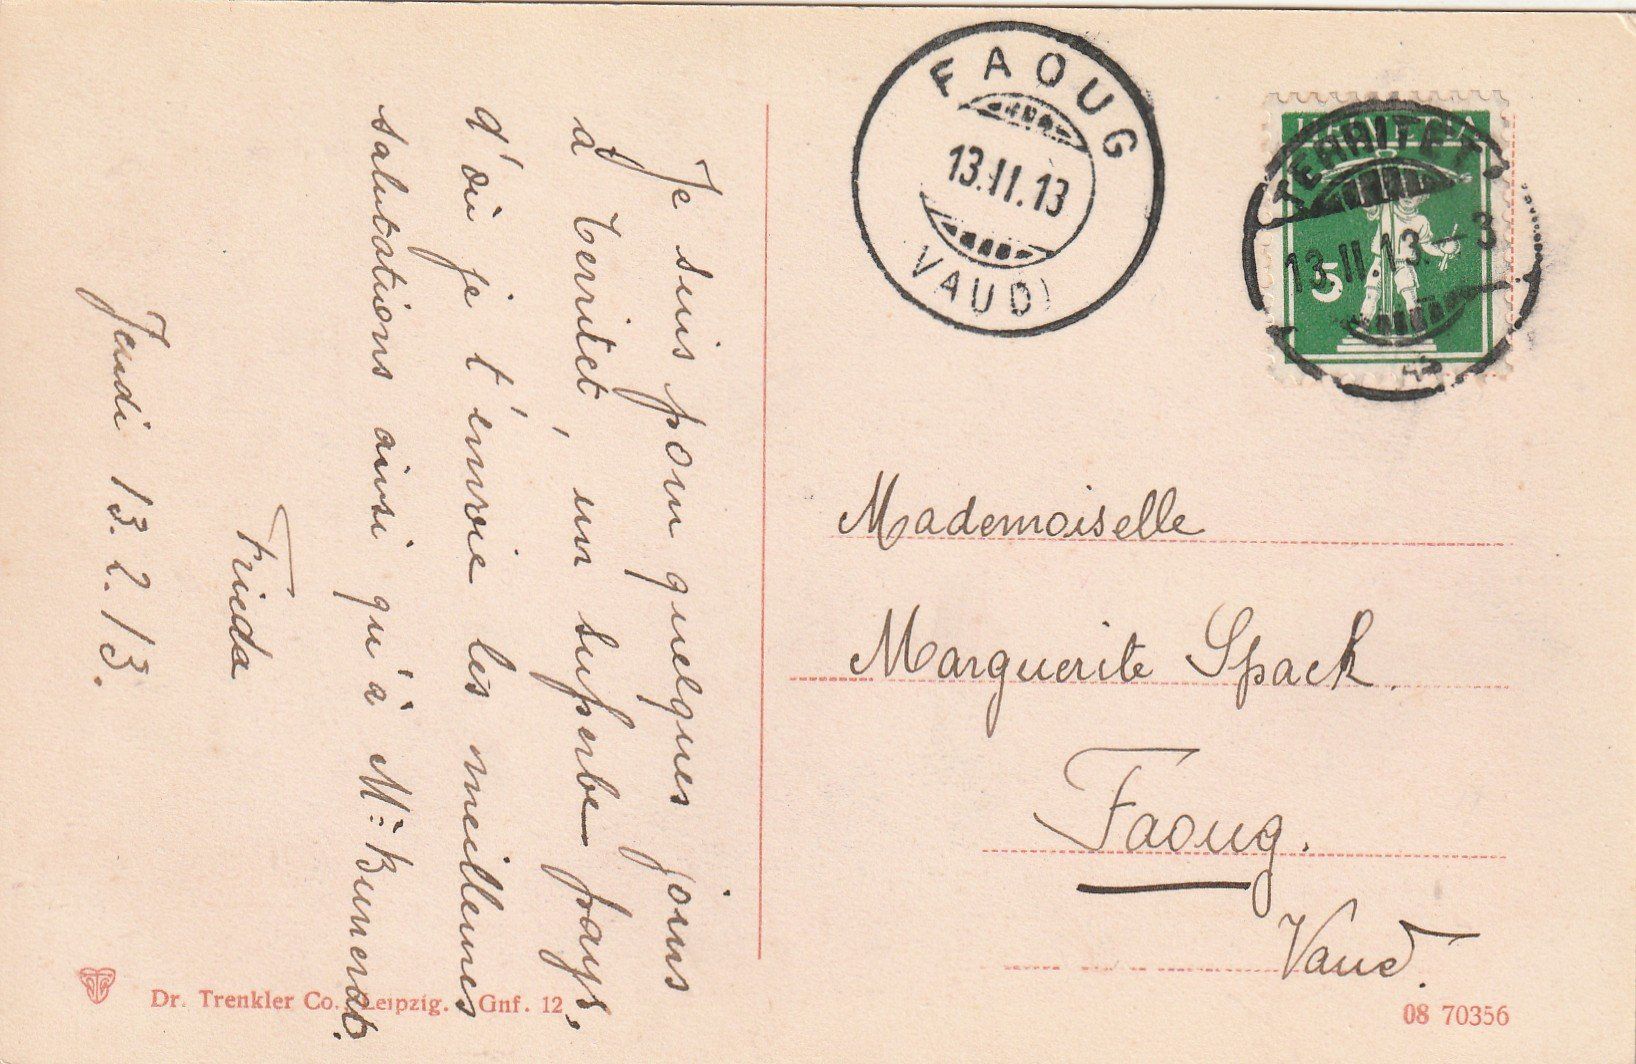 Je suis pour quelques jours
à Territet, un superbe pays,
d'où je t'envoie les meilleures
salutations ainsi qu'à Mr: Bunerat.
Frieda
Jeudi 13.2.13.
FAOUG
13.II.13
VAUD)
HELVETIA
TERRITET
13.II.13.–3
5
Mademoiselle
Marguerite Spack.
Faoug.
Vaud.
Dr. Trenkler Co. Leipzig. Gnf. 12
08 70356